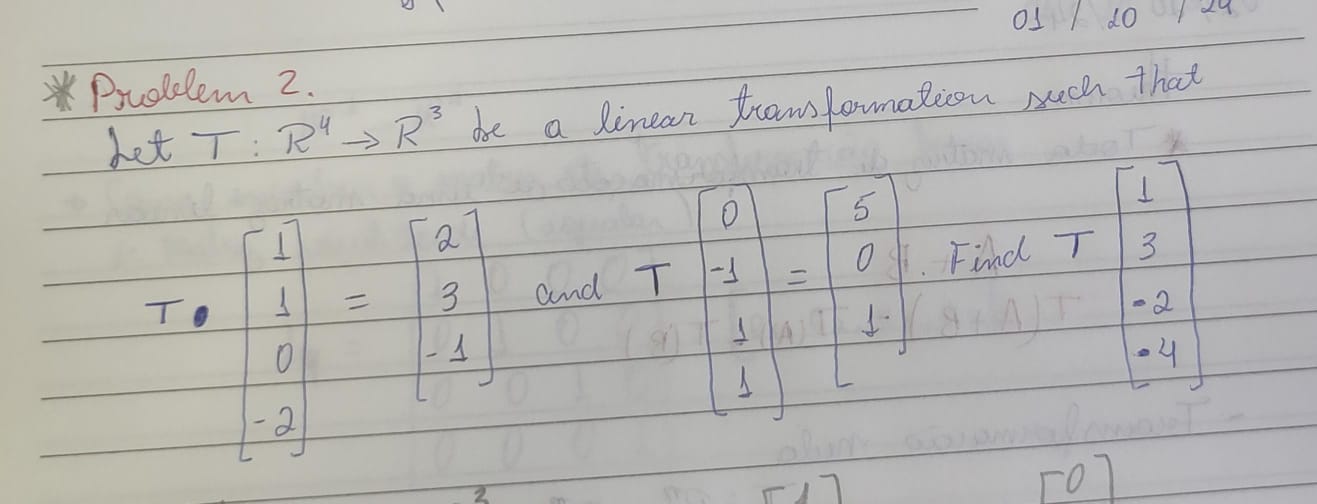 01 / 10 / 24
* Problem 2.
Let T : R⁴ → R³ be a linear transformation such that
T • [1 1 0 -2] = [2 3 -1] and T [0 -1 1 1] = [5 0 1]. Find T [1 3 -2 -4]